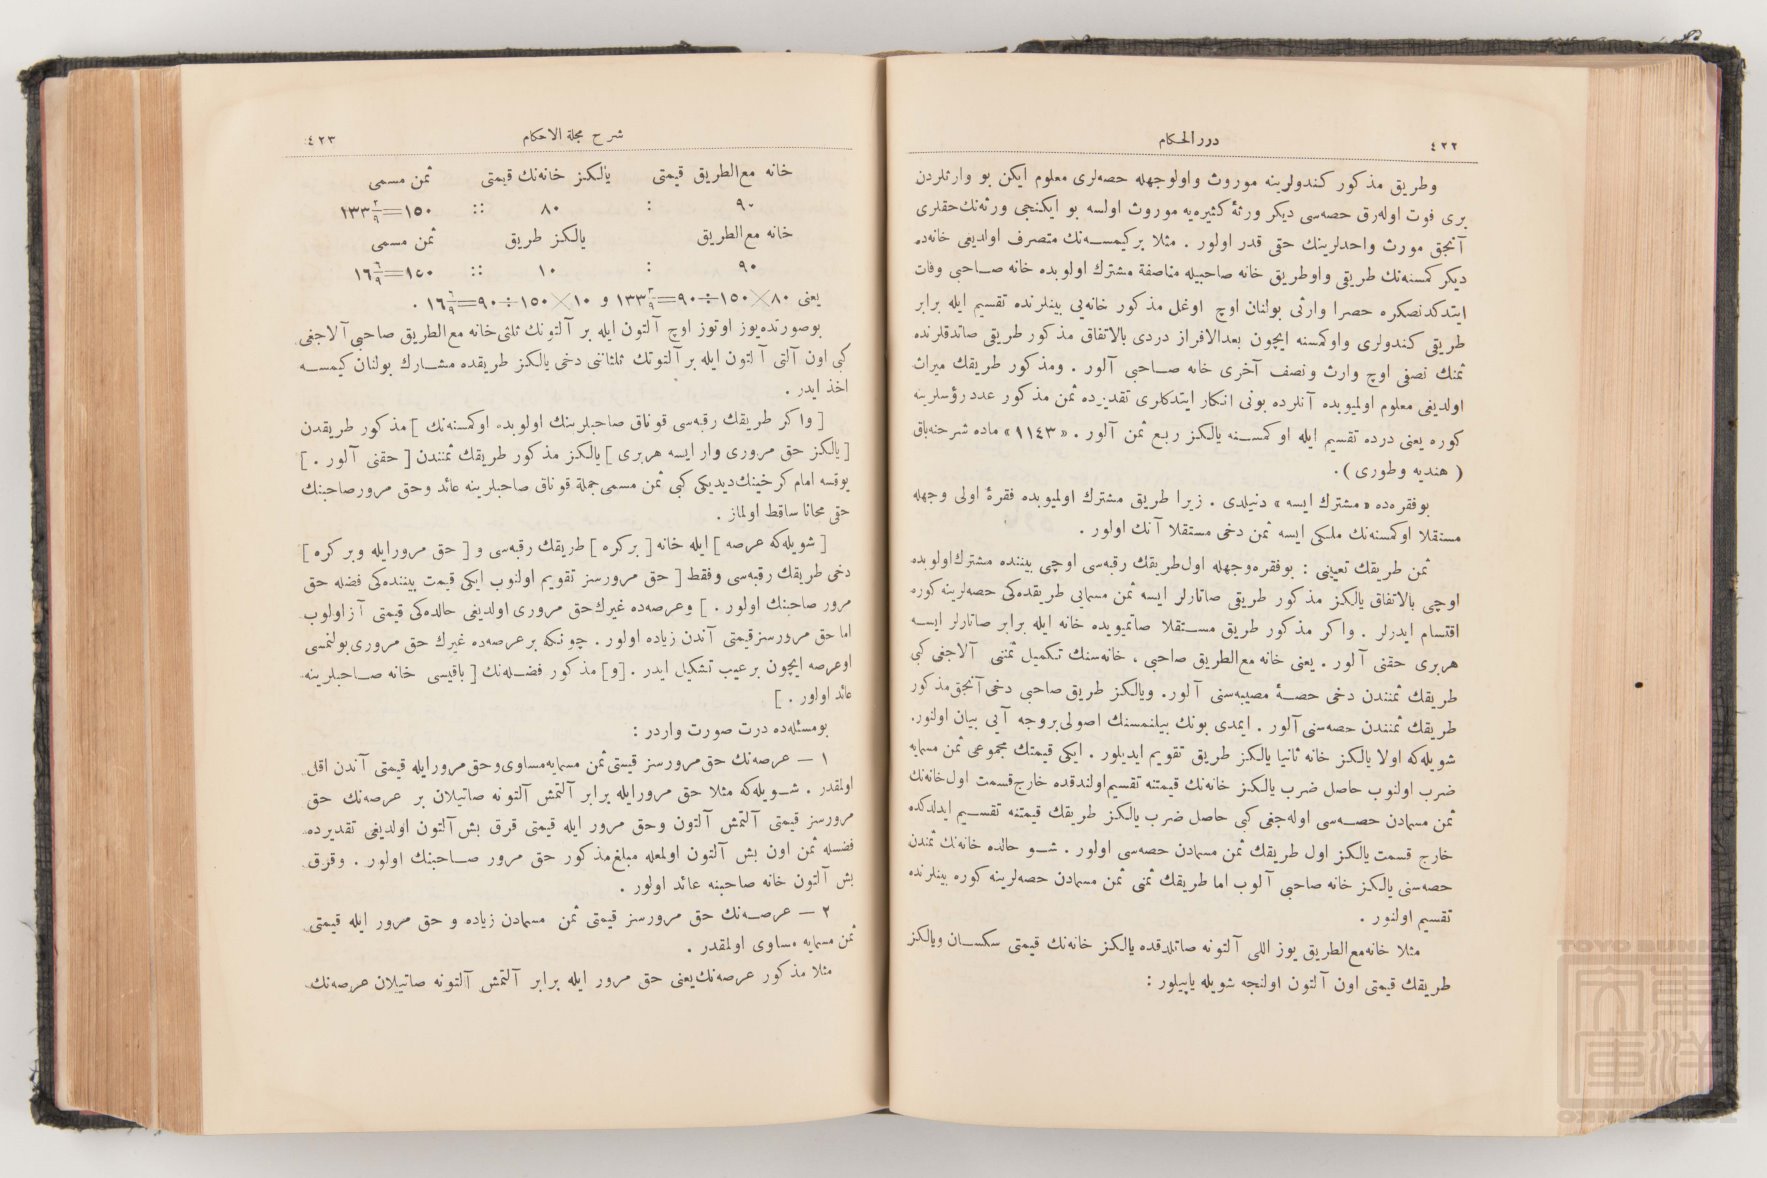 ٤٢٢
درر الحكام
وطريق مذكور كندولرينه موروث واولوجهله حصه‌لرى معلوم ايكن بو وارثلردن
برى فوت اوله‌رق حصه‌سى ديكر ورثۀ كثيره‌يه موروث اولسه بو ايكنجى ورثه‌نك حقلرى
آنجق مورث واحدلرينك حقى قدر اولور . مثلا بر كيمسه‌نك متصرف اولديغى خانه‌ده
ديكر كمسنه‌نك طريقى واو طريق خانه صاحبيله مناصفة مشترك اولوبده خانه صاحبى وفات
ايتدكدنصكره حصرا وارثى بولنان اوچ اوغل مذكور خانه‌يى بينلرنده تقسيم ايله برابر
طريقى كندولرى واوكمسنه ايچون بعدالافراز دردى بالاتفاق مذكور طريقى صاتدقلرنده
ثمنك نصفى اوچ وارث ونصف آخرى خانه صاحبى آلور . ومذكور طريقك ميراث
اولديغى معلوم اولميوبده آنلرده بونى انكار ايتدكلرى تقديرده ثمن مذكور عدد رؤسلرينه
كوره يعنى درده تقسيم ايله اوكمسنه يالكز ربع ثمن آلور . « ١١٤٣ » ماده شرحنه‌باق
( هنديه وطورى ) .
بوفقره‌ده « مشترك ايسه » دنيلدى . زيرا طريق مشترك اولميوبده فقرۀ اولى وجهله
مستقلا اوكمسنه‌نك ملكى ايسه ثمن دخى مستقلا آنك اولور .
ثمن طريقك تعيينى : بوفقره‌وجهله اول طريقك رقبه‌سى اوچى بيننده مشترك اولوبده
اوچى بالاتفاق يالكز مذكور طريقى صاتارلر ايسه ثمن مسمايى طريقده‌كى حصه‌لرينه كوره
اقتسام ايدرلر . واكر مذكور طريق مستقلا صاتميوبده خانه ايله برابر صاتارلر ايسه
هربرى حقنى آلور . يعنى خانه مع‌الطريق صاحبى ، خانه‌سنك تكميل ثمننى آلاجغى كبى
طريقك ثمنندن دخى حصۀ مصيبه‌سنى آلور. ويالكز طريق صاحبى دخى آنجق مذكور
طريقك ثمنندن حصه‌سنى آلور . ايمدى بونك بيلنمسنك اصولى بروجه آتى بيان اولنور.
شويله‌كه اولا يالكز خانه ثانيا يالكز طريق تقويم ايديلور . ايكى قيمتك مجموعى ثمن مسمايه
ضرب اولنوب حاصل ضرب يالكز خانه‌نك قيمتنه تقسيم اولندقده خارج قسمت اول خانه‌نك
ثمن مسمادن حصه‌سى اوله‌جغى كبى حاصل ضرب يالكز طريقك قيمتنه تقسيم ايدلدكده
خارج قسمت يالكز اول طريقك ثمن مسمادن حصه‌سى اولور . شو حالده خانه‌نك ثمندن
حصه‌سنى يالكز خانه صاحبى آلوب اما طريقك ثمنى ثمن مسمادن حصه‌لرينه كوره بينلرنده
تقسيم اولنور .
مثلا خانه‌مع‌الطريق يوز اللى آلتونه صاتلدقده يالكز خانه‌نك قيمتى سكسان ويالكز
طريقك قيمتى اون آلتون اولنجه شويله ياپيلور :
شرح مجلة الاحكام
٤٢٣
خانه مع‌الطريق قيمتى يالكز خانه‌نك قيمتى ثمن مسمى
٩٠ : ٨٠ :: ١٥٠=١٣٣ ٣/٩
خانه مع‌الطريق يالكز طريق ثمن مسمى
٩٠ : ١٠ :: ١٥٠=١٦ ٦/٩
يعنى ٨٠×١٥٠÷٩٠=١٣٣ ٣/٩ و ١٠×١٥٠÷٩٠=١٦ ٦/٩ .
بوصورتده‌يوز اوتوز اوچ آلتون ايله بر آلتونك ثلثى خانه مع‌الطريق صاحبى آلاجغى
كبى اون آلتى آلتون ايله بر آلتونك ثلثاننى دخى يالكز طريقده مشارك بولنان كيمسه
اخذ ايدر .
[ واكر طريقك رقبه‌سى قوناق صاحبلرينك اولوبده اوكمسنه‌نك ] مذكور طريقدن
[ يالكز حق مرورى وار ايسه هربرى ] يالكز مذكور طريقك ثمنندن [ حقنى آلور . ]
يوقسه امام كرخينك ديديكى كبى ثمن مسمى جملة قوناق صاحبلرينه عائد وحق مرور صاحبنك
حقى مجانا ساقط اولماز .
[ شويله‌كه عرصه ] ايله خانه [ بركره ] طريقك رقبه‌سى و [ حق مرورايله وبر كره ]
دخى طريقك رقبه‌سى وفقط [ حق مرورسز تقويم اولنوب ايكى قيمت بيننده‌كى فضله حق
مرور صاحبنك اولور . ] وعرصه‌ده غيرك‌حق مرورى اولديغى حالده‌كى قيمتى آز اولوب
اما حق مرورسز قيمتى آندن زياده اولور . چونكه بر عرصه‌ده غيرك حق مرورى بولنمسى
اوعرصه ايچون بر عيب تشكيل ايدر . [و] مذكور فضله‌نك [ باقيسى خانه صاحبلرينه
عائد اولور . ]
بومسئله‌ده درت صورت واردر :
١ — عرصه‌نك حق‌مرورسز قيمتى ثمن مسمايه‌مساوى‌وحق‌مرورايله قيمتى آندن اقل
اولمقدر . شويله‌كه مثلا حق مرورايله برابر آلتمش آلتونه صاتيلان بر عرصه‌نك حق
مرورسز قيمتى آلتمش آلتون وحق مرور ايله قيمتى قرق بش آلتون اولديغى تقديرده
فضله ثمن اون بش آلتون اولمغله مبلغ مذكور حق مرور صاحبنك اولور . وقرق
بش آلتون خانه صاحبنه عائد اولور .
٢ — عرصه‌نك حق مرورسز قيمتى ثمن مسمادن زياده و حق مرور ايله قيمتى
ثمن مسمايه مساوى اولمقدر .
مثلا مذكور عرصه‌نك يعنى حق مرور ايله برابر آلتمش آلتونه صاتيلان عرصه‌نك
TOYO BUNKO
東洋文庫